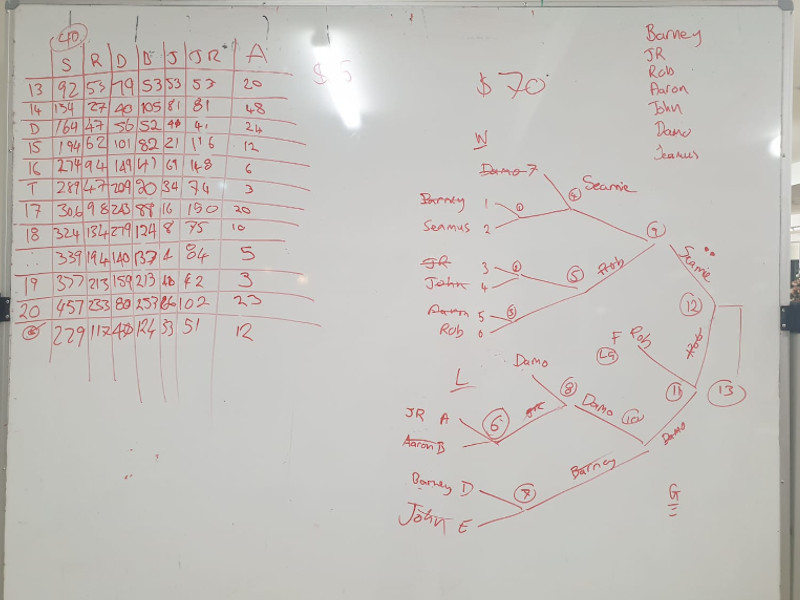 40
S R D B J JR A
13 92 53 79 53 53 53 20
14 134 27 40 105 81 81 48
D 164 47 56 52 24
15 194 62 101 82 21 116 12
16 274 94 149 69 148 6
T 289 47 209 90 34 74 3
17 306 98 243 88 16 150 20
18 324 134 279 124 8 75 10
339 194 140 137 84 5
19 377 213 159 213 3
20 457 233 80 253 102 23
229 124 33 51 12
$
$70
Barney
JR
Rob
Aaron
John
Damo
Seamus
W
Damo 7
Barney 1
Seamus 2
JR 3
John 4
Aaron 5
Rob 6
1
2
3
4
Seamie
5
Rob
9
Seamie
12
Rob
13
L
Damo
F Rob
JR A
Aaron B
6
8
Damo
10
11
Damo
Barney D
John E
7
Barney
G